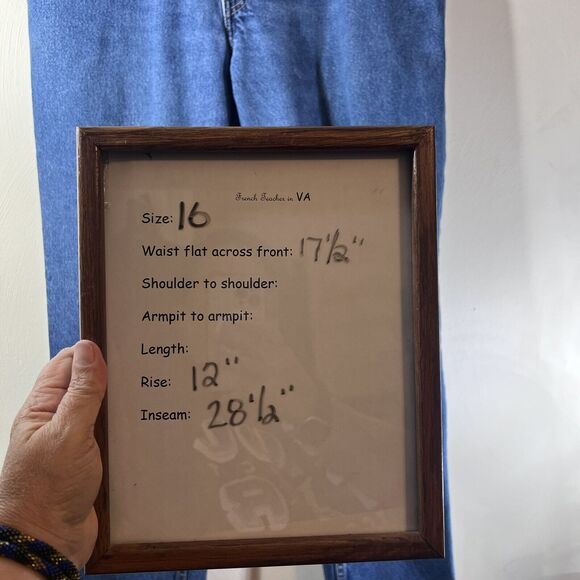 French Teacher in VA
Size: 16
Waist flat across front: 17 1/2"
Shoulder to shoulder:
Armpit to armpit:
Length:
Rise: 12"
Inseam: 28 1/2"